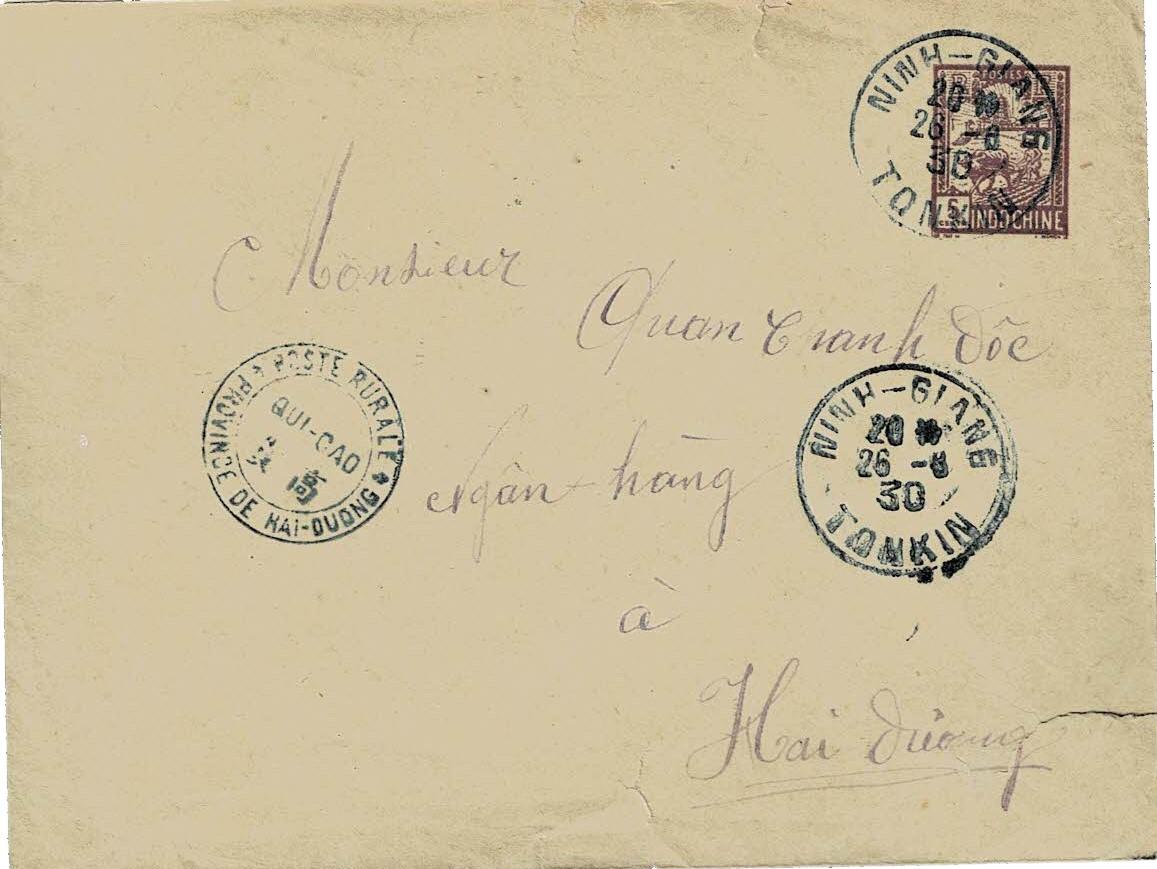 NINH-GIANG
26 -8
30
TONKIN
POSTES
5
INDOCHINE
Monsieur
Quan Chanh Đốc
Ngân hàng
à
Hải dương
POSTE RURALE
QUI-CAO
高
PROVINCE DE HAI-DUONG
NINH-GIANG
26 -8
30
TONKIN